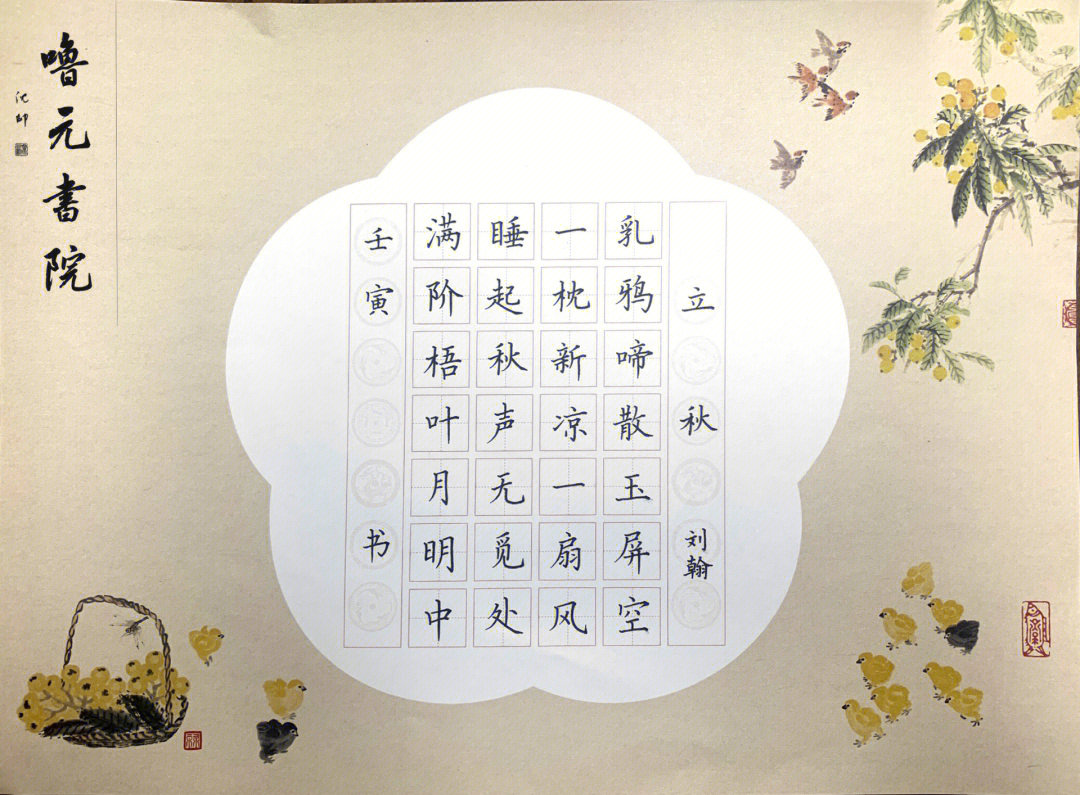 立秋 刘翰
乳鸦啼散玉屏空
一枕新凉一扇风
睡起秋声无觅处
满阶梧叶月明中
壬寅 书
噜元书院